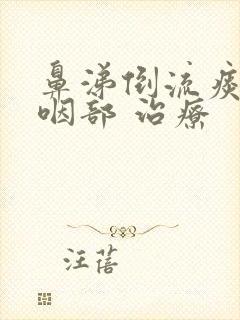 鼻涕倒流痰
咽部 治療
汪蓓